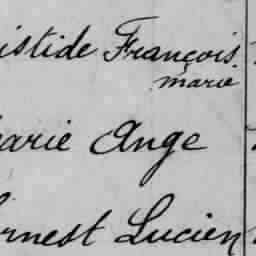 istide François
marie
arie Ange
rnest Lucien